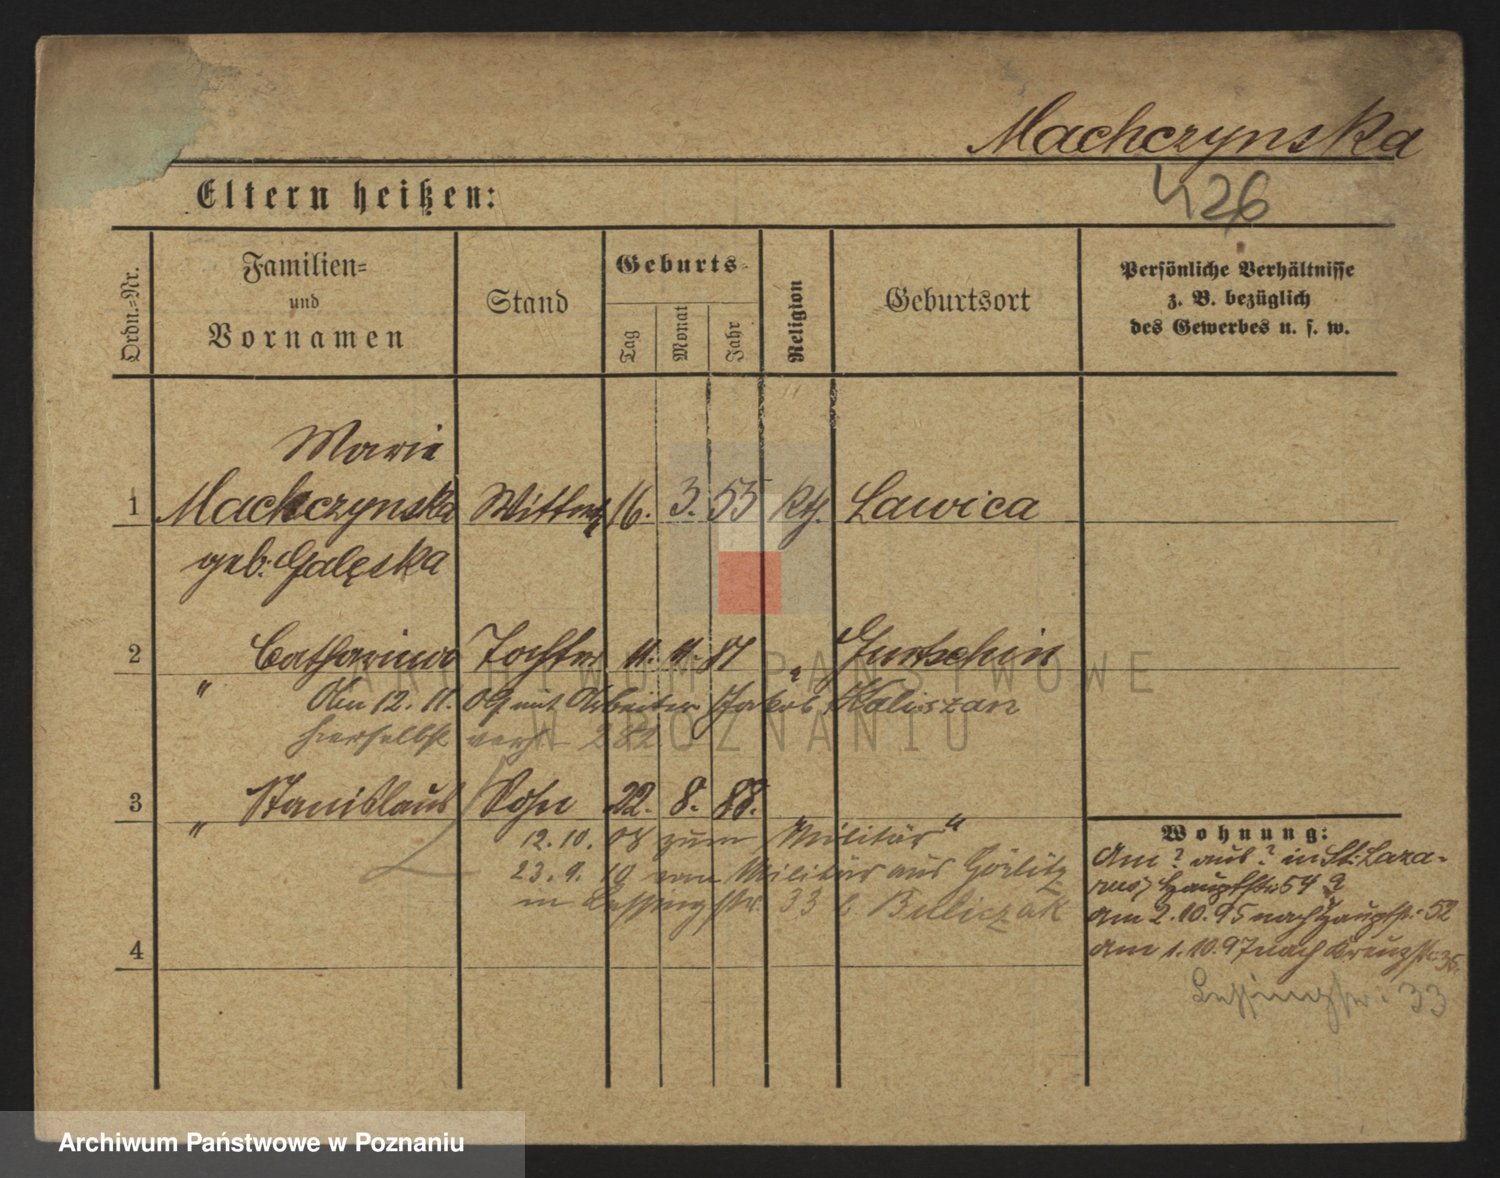 Machczynska
426
Eltern heißen:
Ordn.-Nr.
Familien-
und
Vornamen
Stand
Geburts-
Tag
Monat
Jahr
Religion
Geburtsort
Persönliche Verhältnisse
z. B. bezüglich
des Gewerbes u. s. w.
Marie
1 Machczynska Wittwe 16. 3. 55 kth. Lawica
geb: Galęska
2 Catharina Tochter 11. 11. 87 " Gurtschin
" Am 12. 11. 09 mit Arbeiter Jakob Kaliszan
hierselbst verh 282
3 Stanislaus Sohn 22. 8. 88.
"
12. 10. 08 zum "Militär"
23. 9. 10 vom Militär aus Görlitz
in Lessingstr. 33 b. Buliczak
4
Wohnung:
Am ? aus ? in St: Laza-
rus, Hauptstr: 54 ?
Am 2. 10. 95 nach Hauptstr: 52
Am 1. 10. 97 nach Kreuzstr: 35.
Lessingstr: 33
ARCHIWUM PAŃSTWOWE
W POZNANIU
Archiwum Państwowe w Poznaniu